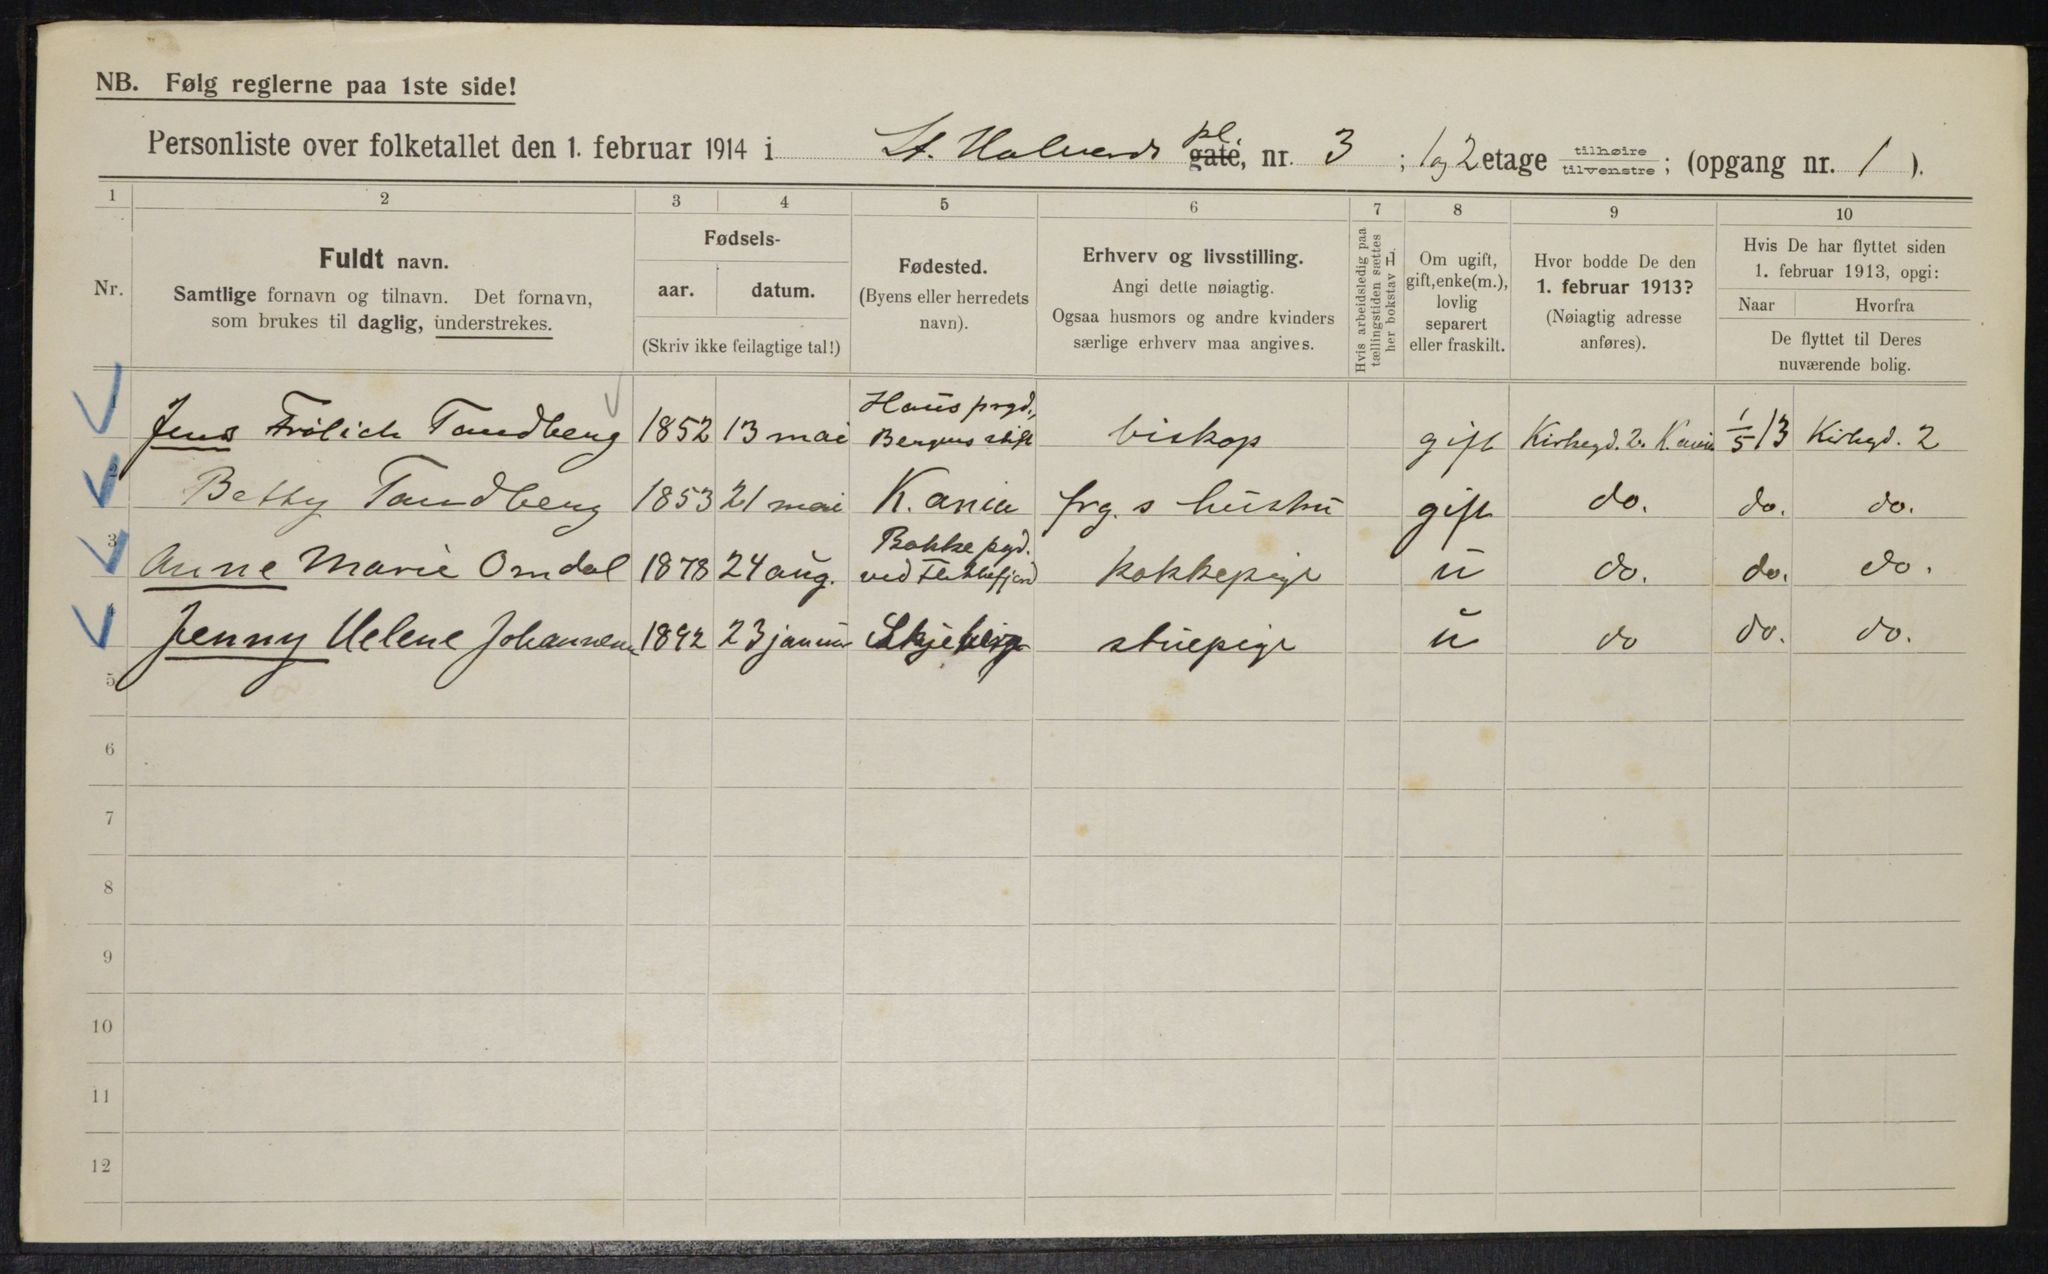 NB. Følg reglerne paa 1ste side!
Personliste over folketallet den 1. februar 1914 i St. Halvards pl. gate, nr. 3 ; 1 og 2 etage tilhøire tilvenstre ; (opgang nr. 1 ).
1 2 3 4 5 6 7 8 9 10
Nr.
Fuldt navn.
Samtlige fornavn og tilnavn. Det fornavn,
som brukes til daglig, understrekes.
Fødsels-
aar. datum.
(Skriv ikke feilagtige tal!)
Fødested.
(Byens eller herredets
navn).
Erhverv og livsstilling.
Angi dette nøiagtig.
Ogsaa husmors og andre kvinders
særlige erhverv maa angives.
Hvis arbeidsledig paa
tællingstiden sættes
her bokstav L.
Om ugift,
gift, enke(m.),
lovlig
separert
eller fraskilt.
Hvor bodde De den
1. februar 1913?
(Nøiagtig adresse
anføres).
Hvis De har flyttet siden
1. februar 1913, opgi:
Naar Hvorfra
De flyttet til Deres
nuværende bolig.
1 Jens Frölich Tandberg 1852 13 mai Haus prgd., Bergens stift biskop gift Kirkegd. 2. K.ania 1/5 13 Kirkegd. 2
2 Betty Tandberg 1853 21 mai K.ania frg. s hustru gift do. do. do.
3 Anne Marie Omdal 1878 24 aug. Bakke pgd. ved Flekkefjord kokkepige u do. do. do.
4 Jenny Helene Johannesen 1892 23 januar Skjeberg stuepige u do do. do.
5
6
7
8
9
10
11
12